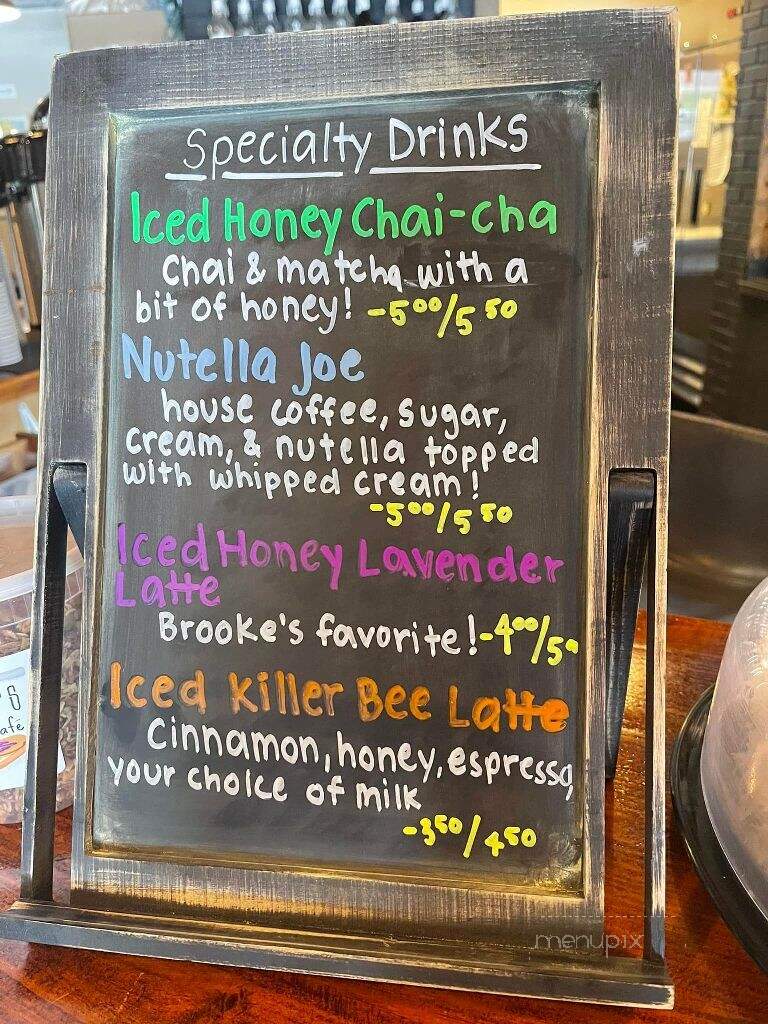 Specialty Drinks
Iced Honey Chai-cha
Chai & matcha with a
bit of honey! -5⁰⁰/5⁵⁰
Nutella Joe
house coffee, sugar,
cream, & nutella topped
with whipped cream!
-5⁰⁰/5⁵⁰
Iced Honey Lavender
Latte
Brooke's favorite! -4⁰⁰/5⁰⁰
Iced Killer Bee Latte
Cinnamon, honey, espresso,
your choice of milk
-3⁵⁰/4⁵⁰
menupix